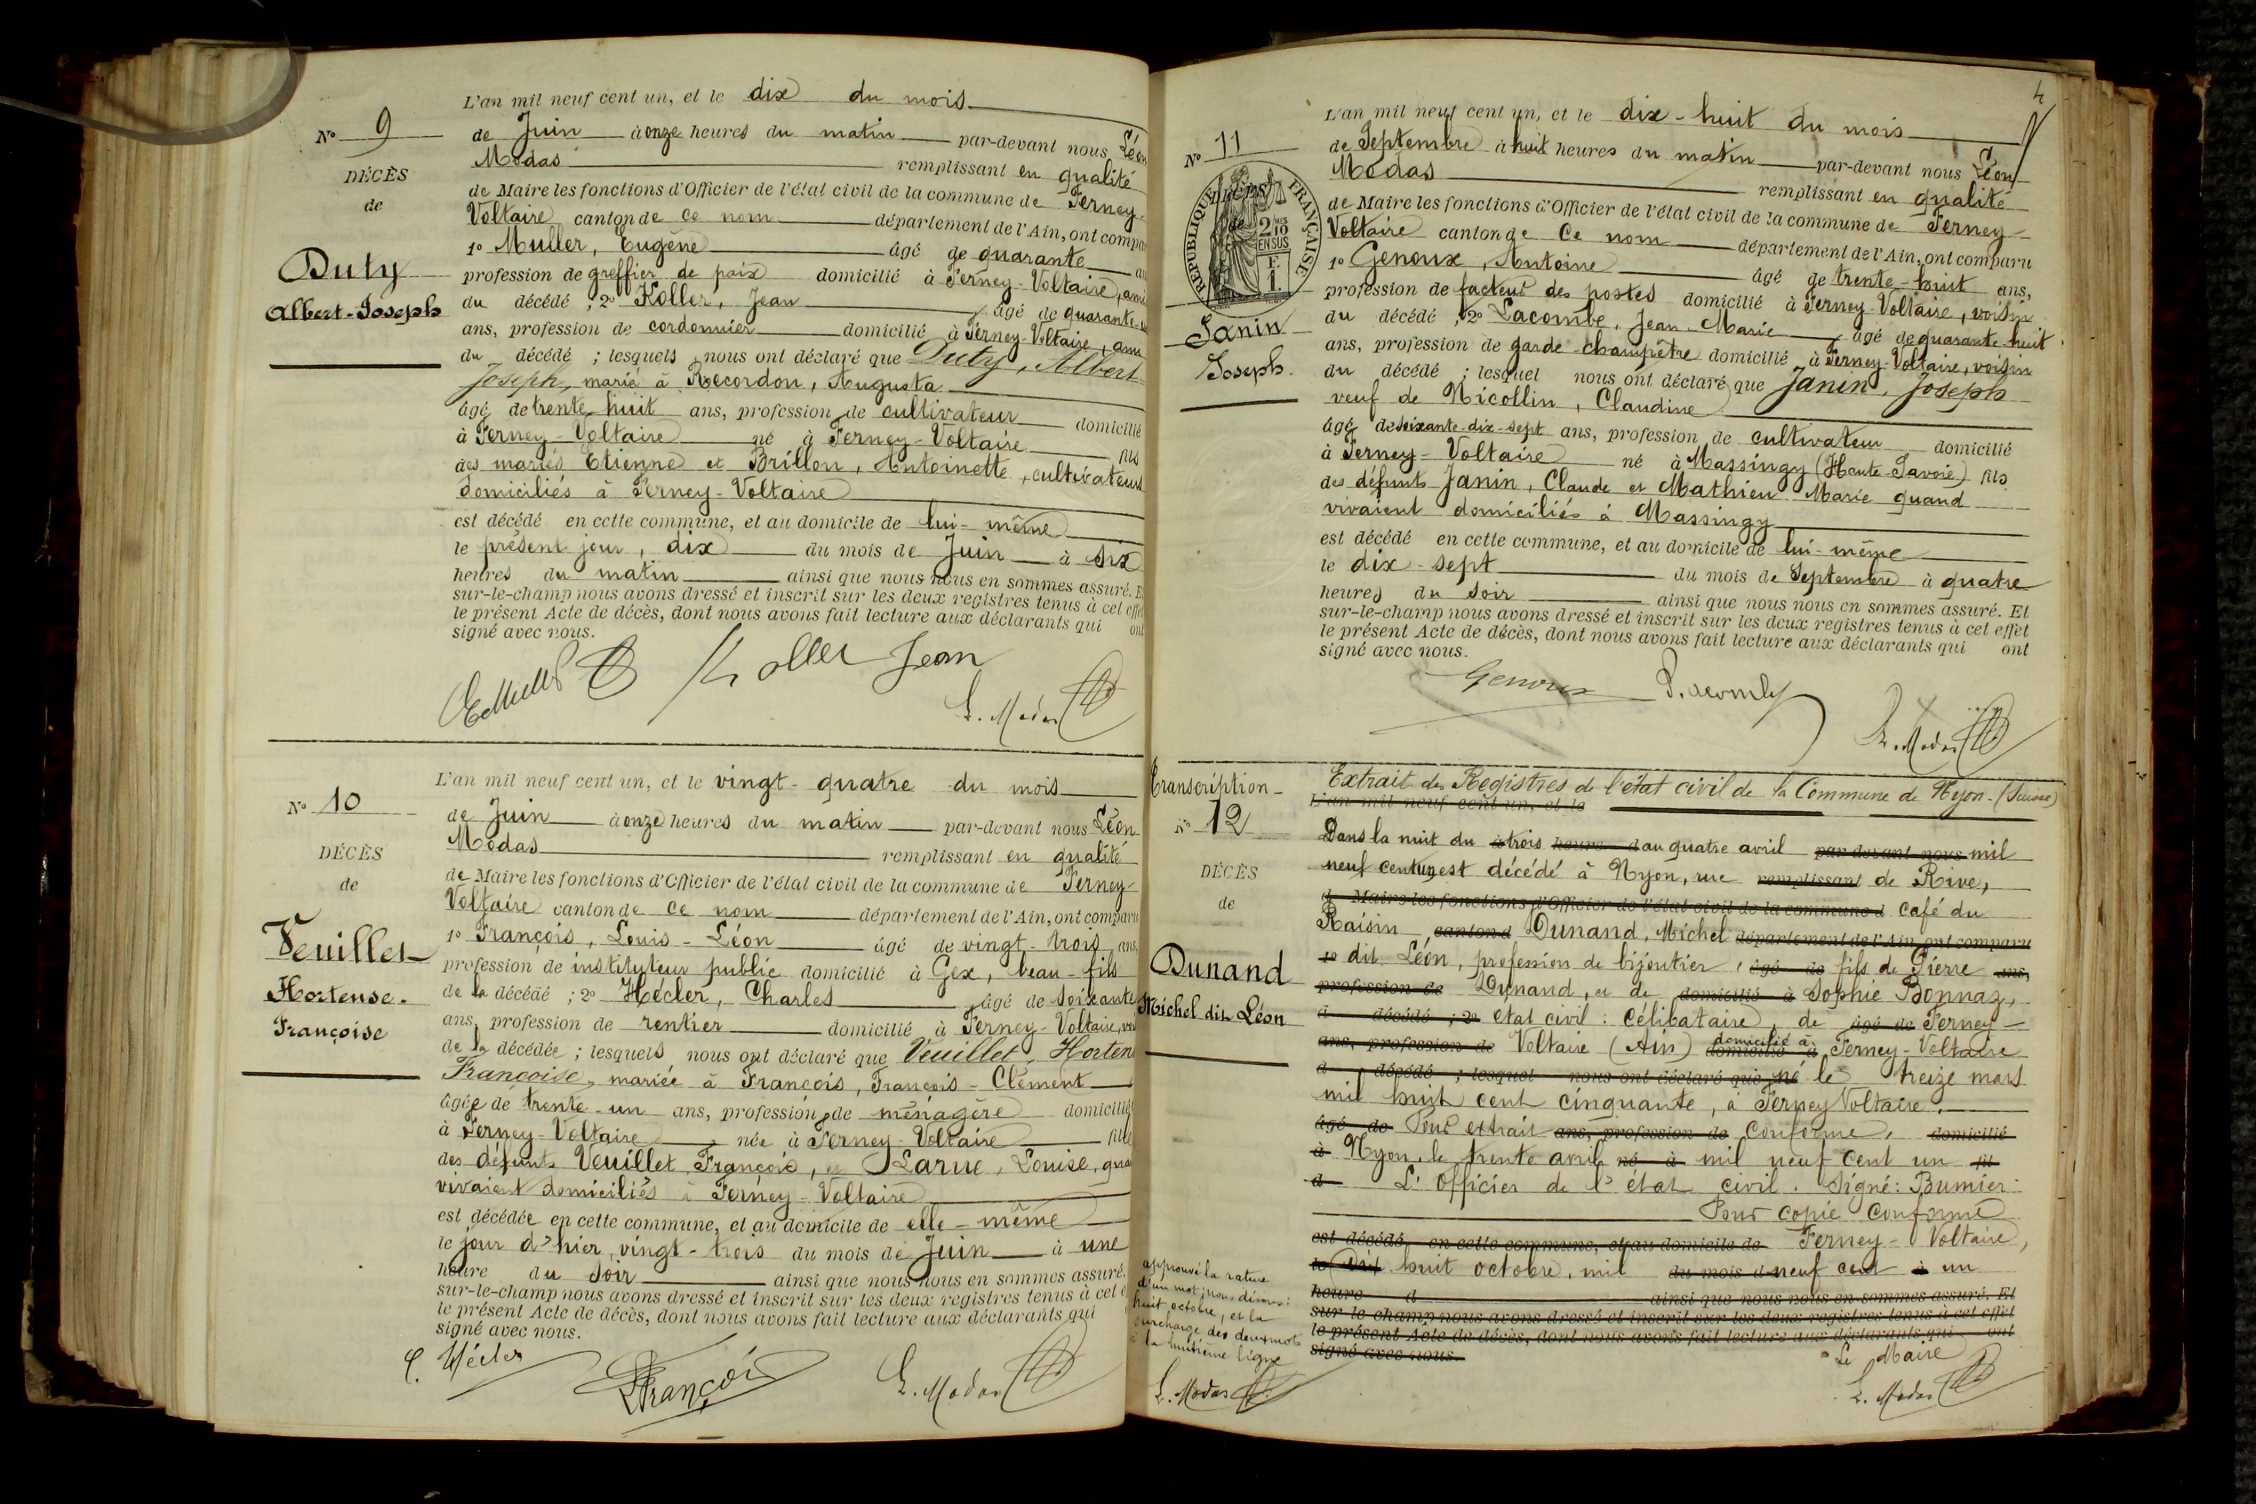 L'an mil neuf cent un, et le dix du mois
N° 9
de Juin à onze heures du matin par-devant nous Léon
Modas remplissant en qualité
DÉCÈS
de Maire les fonctions d'Officier de l'état civil de la commune de Ferney-
de
Voltaire canton de ce nom département de l'Ain, ont compa
1° Muller, Eugène âgé de quarante
Duty
profession de greffier de paix domicilié à Ferney-Voltaire, ami
Albert-Joseph
du décédé ; 2° Koller, Jean âgé de quarante
ans, profession de cordonnier domicilié à Ferney-Voltaire, ami
du décédé ; lesquels nous ont déclaré que Duty, Albert
Joseph, marié à Recordon, Augusta
âgé de trente-huit ans, profession de cultivateur domicilié
à Ferney-Voltaire né à Ferney-Voltaire fils
des mariés Etienne et Brillon, Antoinette, cultivateurs
domiciliés à Ferney-Voltaire
est décédé en cette commune, et au domicile de lui-même
le présent jour, dix du mois de Juin à six
heures du matin ainsi que nous nous en sommes assuré. E
sur-le-champ nous avons dressé et inscrit sur les deux registres tenus à cet effet
le présent Acte de décès, dont nous avons fait lecture aux déclarants qui ont
signé avec nous.
Koller Jean
L. Modas
L'an mil neuf cent un, et le vingt-quatre du mois
N° 10
de Juin à onze heures du matin par-devant nous Léon
Modas remplissant en qualité
DÉCÈS
de Maire les fonctions d'Officier de l'état civil de la commune de Ferney-
de
Voltaire canton de ce nom département de l'Ain, ont comparu
1° François, Louis-Léon âgé de vingt-trois ans,
Veuillet
profession de instituteur public domicilié à Gex, beau-fils
Hortense.
de la décédé ; 2° Hécler, Charles âgé de soixante
Françoise
ans, profession de rentier domicilié à Ferney-Voltaire, voi
de la décédée ; lesquels nous ont déclaré que Veuillet, Horten
Françoise, mariée à François, François-Clément
âgée de trente-un ans, profession de ménagère domiciliée
à Ferney-Voltaire née à Ferney-Voltaire fille
des défunts Veuillet, François, et Larue, Louise, qua
vivaient domiciliés à Ferney-Voltaire
est décédée en cette commune, et au domicile de elle-même
le jour d'hier, vingt-trois du mois de Juin à une
heure du soir ainsi que nous nous en sommes assuré.
sur-le-champ nous avons dressé et inscrit sur les deux registres tenus à cet e
le présent Acte de décès, dont nous avons fait lecture aux déclarants qui
signé avec nous.
C. Hécler
LFrançois
L. Modas
4
L'an mil neuf cent un, et le dix-huit du mois
N° 11
de Septembre à huit heures du matin par-devant nous Léon
Modas remplissant en qualité
DÉCÈS
de
RÉPUBLIQUE FRANÇAISE
2/10 EN SUS
F. 1.
de Maire les fonctions d'Officier de l'état civil de la commune de Ferney-
Voltaire canton de Ce nom département de l'Ain, ont comparu
1° Genoux, Antoine âgé de trente-huit ans,
profession de facteur des postes domicilié à Ferney-Voltaire, voisin
Janin
du décédé ; 2° Lacombe, Jean-Marie âgé de quarante-huit
Joseph.
ans, profession de garde-champêtre domicilié à Ferney-Voltaire, voisin
du décédé ; lesquel nous ont déclaré que Janin, Joseph
veuf de Nicollin, Claudine
âgé de soixante-dix-sept ans, profession de cultivateur domicilié
à Ferney-Voltaire né à Massingy (Haute-Savoie) fils
des défunts Janin, Claude et Mathieu Marie quand
vivaient domiciliés à Massingy
est décédé en cette commune, et au domicile de lui-même
le dix-sept du mois de Septembre à quatre
heures du soir ainsi que nous nous en sommes assuré. Et
sur-le-champ nous avons dressé et inscrit sur les deux registres tenus à cet effet
le présent Acte de décès, dont nous avons fait lecture aux déclarants qui ont
signé avec nous.
Genoux
L. Modas
Transcription
Extrait des Registres de l'état civil de la Commune de Nyon (Suisse)
L'an mil neuf cent un, et le
N° 12
Dans la nuit du à trois heure d au quatre avril par-devant nous mil
neuf cent un, est décédé à Nyon, rue remplissant de Rive,
DÉCÈS
d Maire les fonctions d'Officier de l'état civil de la commune d café du
de
Raisin, canton d Dunand, Michel département de l'Ain, ont comparu
1° dit Léon, profession de bijoutier, âgé de fils de Pierre ans,
Dunand
profession de Dunand, et de domicilié à Sophie Bonnaz,
Michel dit Léon
d décédé ; 2° etat civil : célibataire, de âgé de Ferney-
ans, profession de Voltaire (Ain) domicilié à domicilié à Ferney-Voltaire
d décédé ; lesquel nous ont déclaré que né le treize mars
mil huit cent cinquante, à Ferney Voltaire.
âgé de Pour extrait ans, profession de conforme, domicilié
à Nyon, le trente avril né à mil neuf cent un fil
d L'Officier de l'état civil. Signé : Bumier.
Pour copie conforme
est décédé en cette commune, et au domicile de Ferney-Voltaire,
le huit octobre, mil du mois d neuf cent à un
heure d ainsi que nous nous en sommes assuré. Et
sur-le-champ nous avons dressé et inscrit sur les deux registres tenus à cet effet
le présent Acte de décès, dont nous avons fait lecture aux déclarants qui ont
signé avec nous.
Le Maire
L. Modas
approuvé la rature
d'un mot, nous disons :
huit octobre, et la
surcharge des deux mots
à la huitième ligne
L. Modas